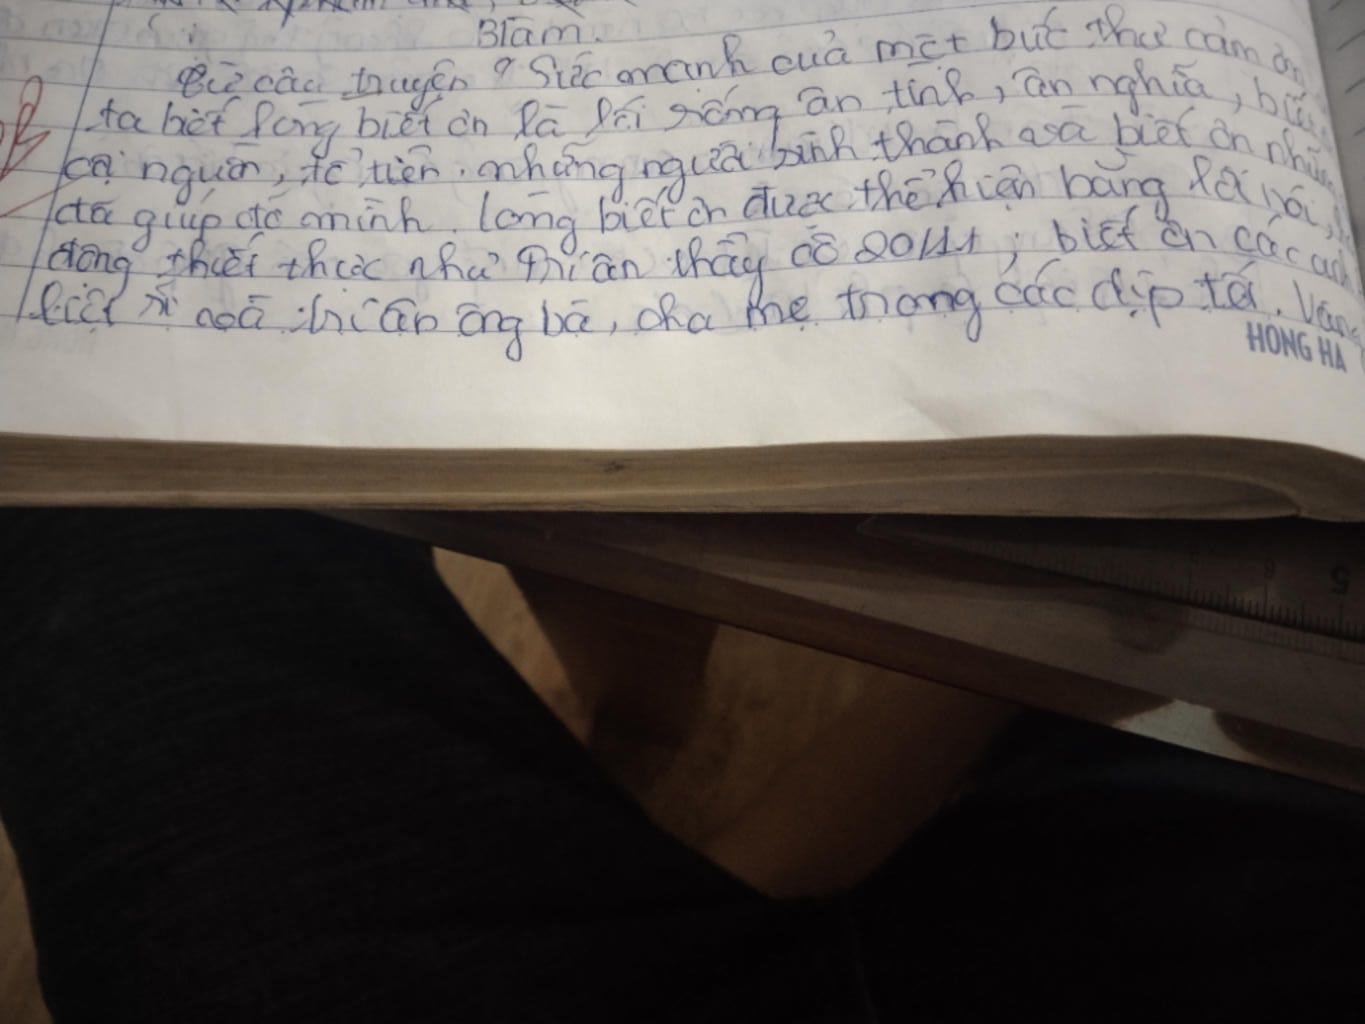 Blàm.
Từ câu truyện "Sức mạnh của một bức thư cảm ơn
ta biết lòng biết ơn là lối sống ân tình, ân nghĩa, biết
cội nguồn, tổ tiên. những người sinh thành và biết ơn những
đã giúp đỡ mình. lòng biết ơn được thể hiện bằng lời nói,
động thiết thực như tri ân thầy cô 20/11; biết ơn các anh
liệt sĩ và tri ân ông bà, cha mẹ trong các dịp tết. Vâng
HONG HA